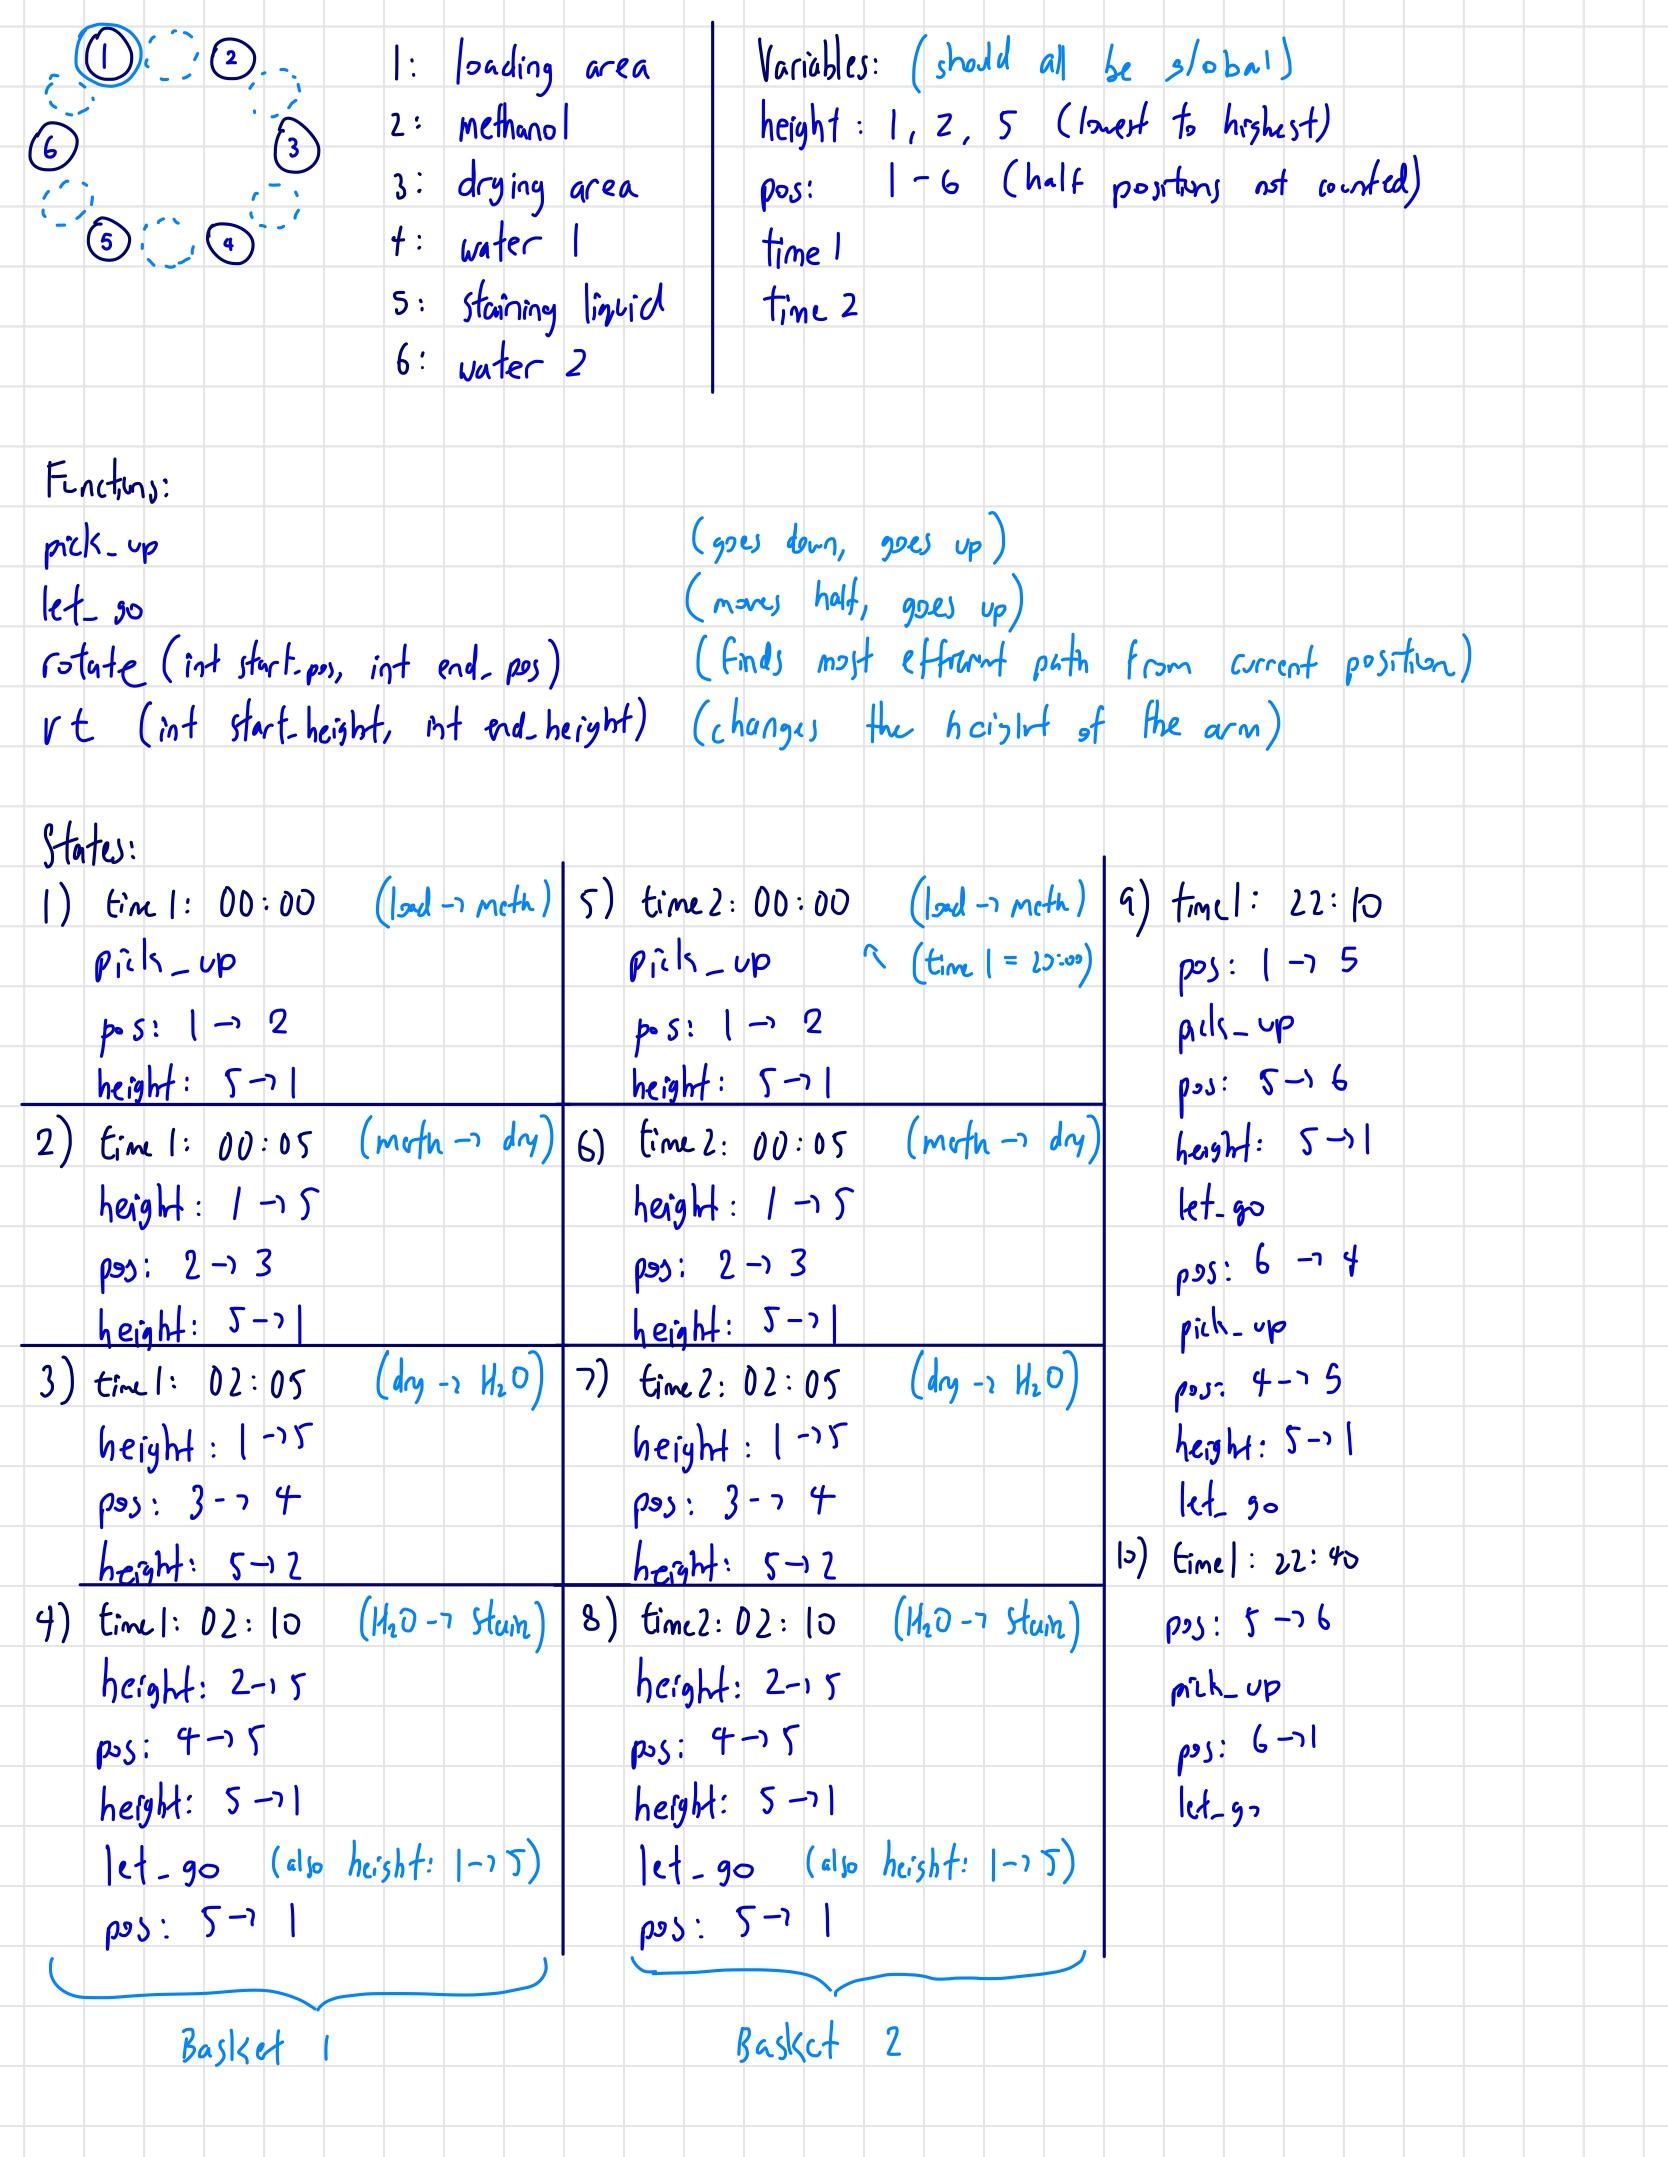 1
2
3
4
5
6
1: loading area
2: methanol
3: drying area
4: water 1
5: staining liquid
6: water 2
Variables: (should all be global)
height: 1, 2, 5 (lowest to highest)
pos: 1-6 (half positions not counted)
time 1
time 2
Functions:
pick_up (goes down, goes up)
let_go (moves half, goes up)
rotate (int start_pos, int end_pos) (finds most efficient path from current position)
rt (int start_height, int end_height) (changes the height of the arm)
States:
1) time 1: 00:00 (load → meth)
pick_up
pos: 1 → 2
height: 5 → 1
2) time 1: 00:05 (meth → dry)
height: 1 → 5
pos: 2 → 3
height: 5 → 1
3) time 1: 02:05 (dry → H₂O)
height: 1 → 5
pos: 3 → 4
height: 5 → 2
4) time 1: 02:10 (H₂O → stain)
height: 2 → 5
pos: 4 → 5
height: 5 → 1
let_go (also height: 1 → 5)
pos: 5 → 1
Basket 1
5) time 2: 00:00 (load → meth)
pick_up ↖ (time 1 = 20:00)
pos: 1 → 2
height: 5 → 1
6) time 2: 00:05 (meth → dry)
height: 1 → 5
pos: 2 → 3
height: 5 → 1
7) time 2: 02:05 (dry → H₂O)
height: 1 → 5
pos: 3 → 4
height: 5 → 2
8) time 2: 02:10 (H₂O → stain)
height: 2 → 5
pos: 4 → 5
height: 5 → 1
let_go (also height: 1 → 5)
pos: 5 → 1
Basket 2
9) time 1: 22:10
pos: 1 → 5
pick_up
pos: 5 → 6
height: 5 → 1
let_go
pos: 6 → 4
pick_up
pos: 4 → 5
height: 5 → 1
let_go
10) time 1: 22:40
pos: 5 → 6
pick_up
pos: 6 → 1
let_go